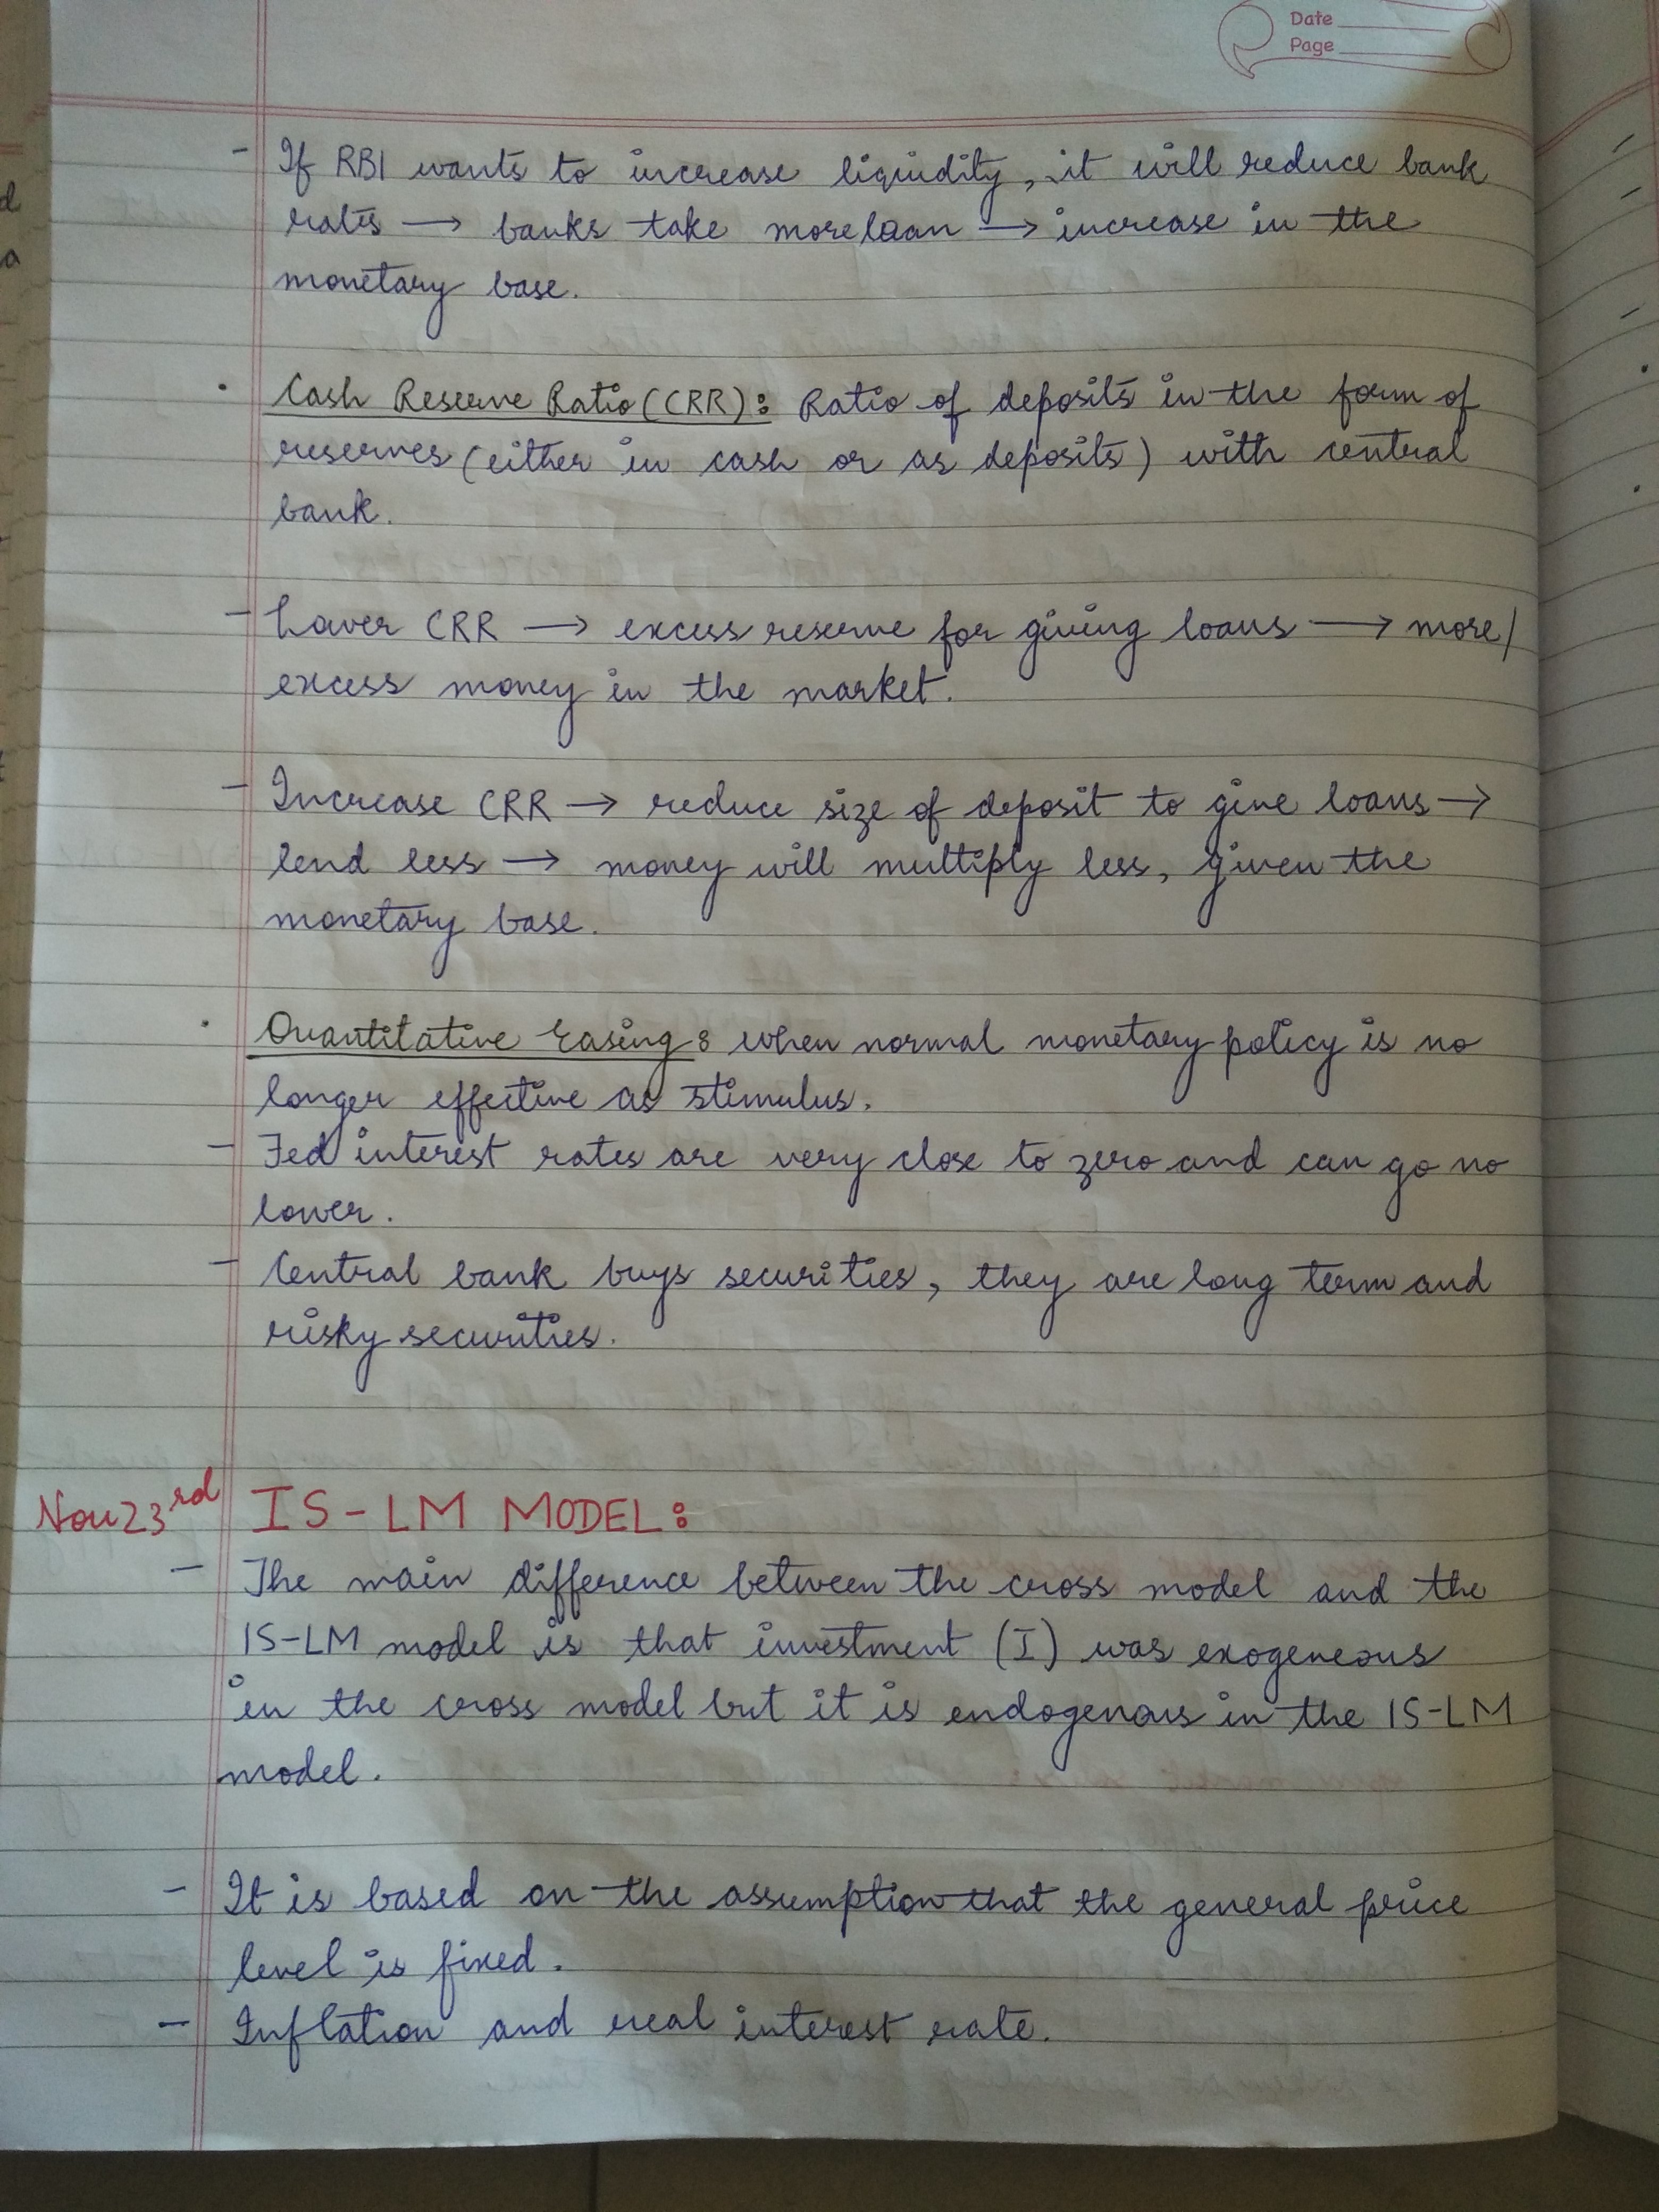 Date
Page
- If RBI wants to increase liquidity, it will reduce bank
rates → banks take more loan → increase in the
monetary base.
· Cash Reserve Ratio (CRR): Ratio of deposits in the form of
reserves (either in cash or as deposits) with central
bank.
- Lower CRR → excess reserve for giving loans → more/
excess money in the market.
- Increase CRR → reduce size of deposit to give loans →
lend less → money will multiply less, given the
monetary base.
· Quantitative Easing: when normal monetary policy is no
longer effective as stimulus.
- Fed interest rates are very close to zero and can go no
lower.
- Central bank buys securities, they are long term and
risky securities.
Nov 23rd IS-LM MODEL:
- The main difference between the cross model and the
IS-LM model is that investment (I) was exogeneous
in the cross model but it is endogenous in the IS-LM
model.
- It is based on the assumption that the general price
level is fixed.
- Inflation and real interest rate.